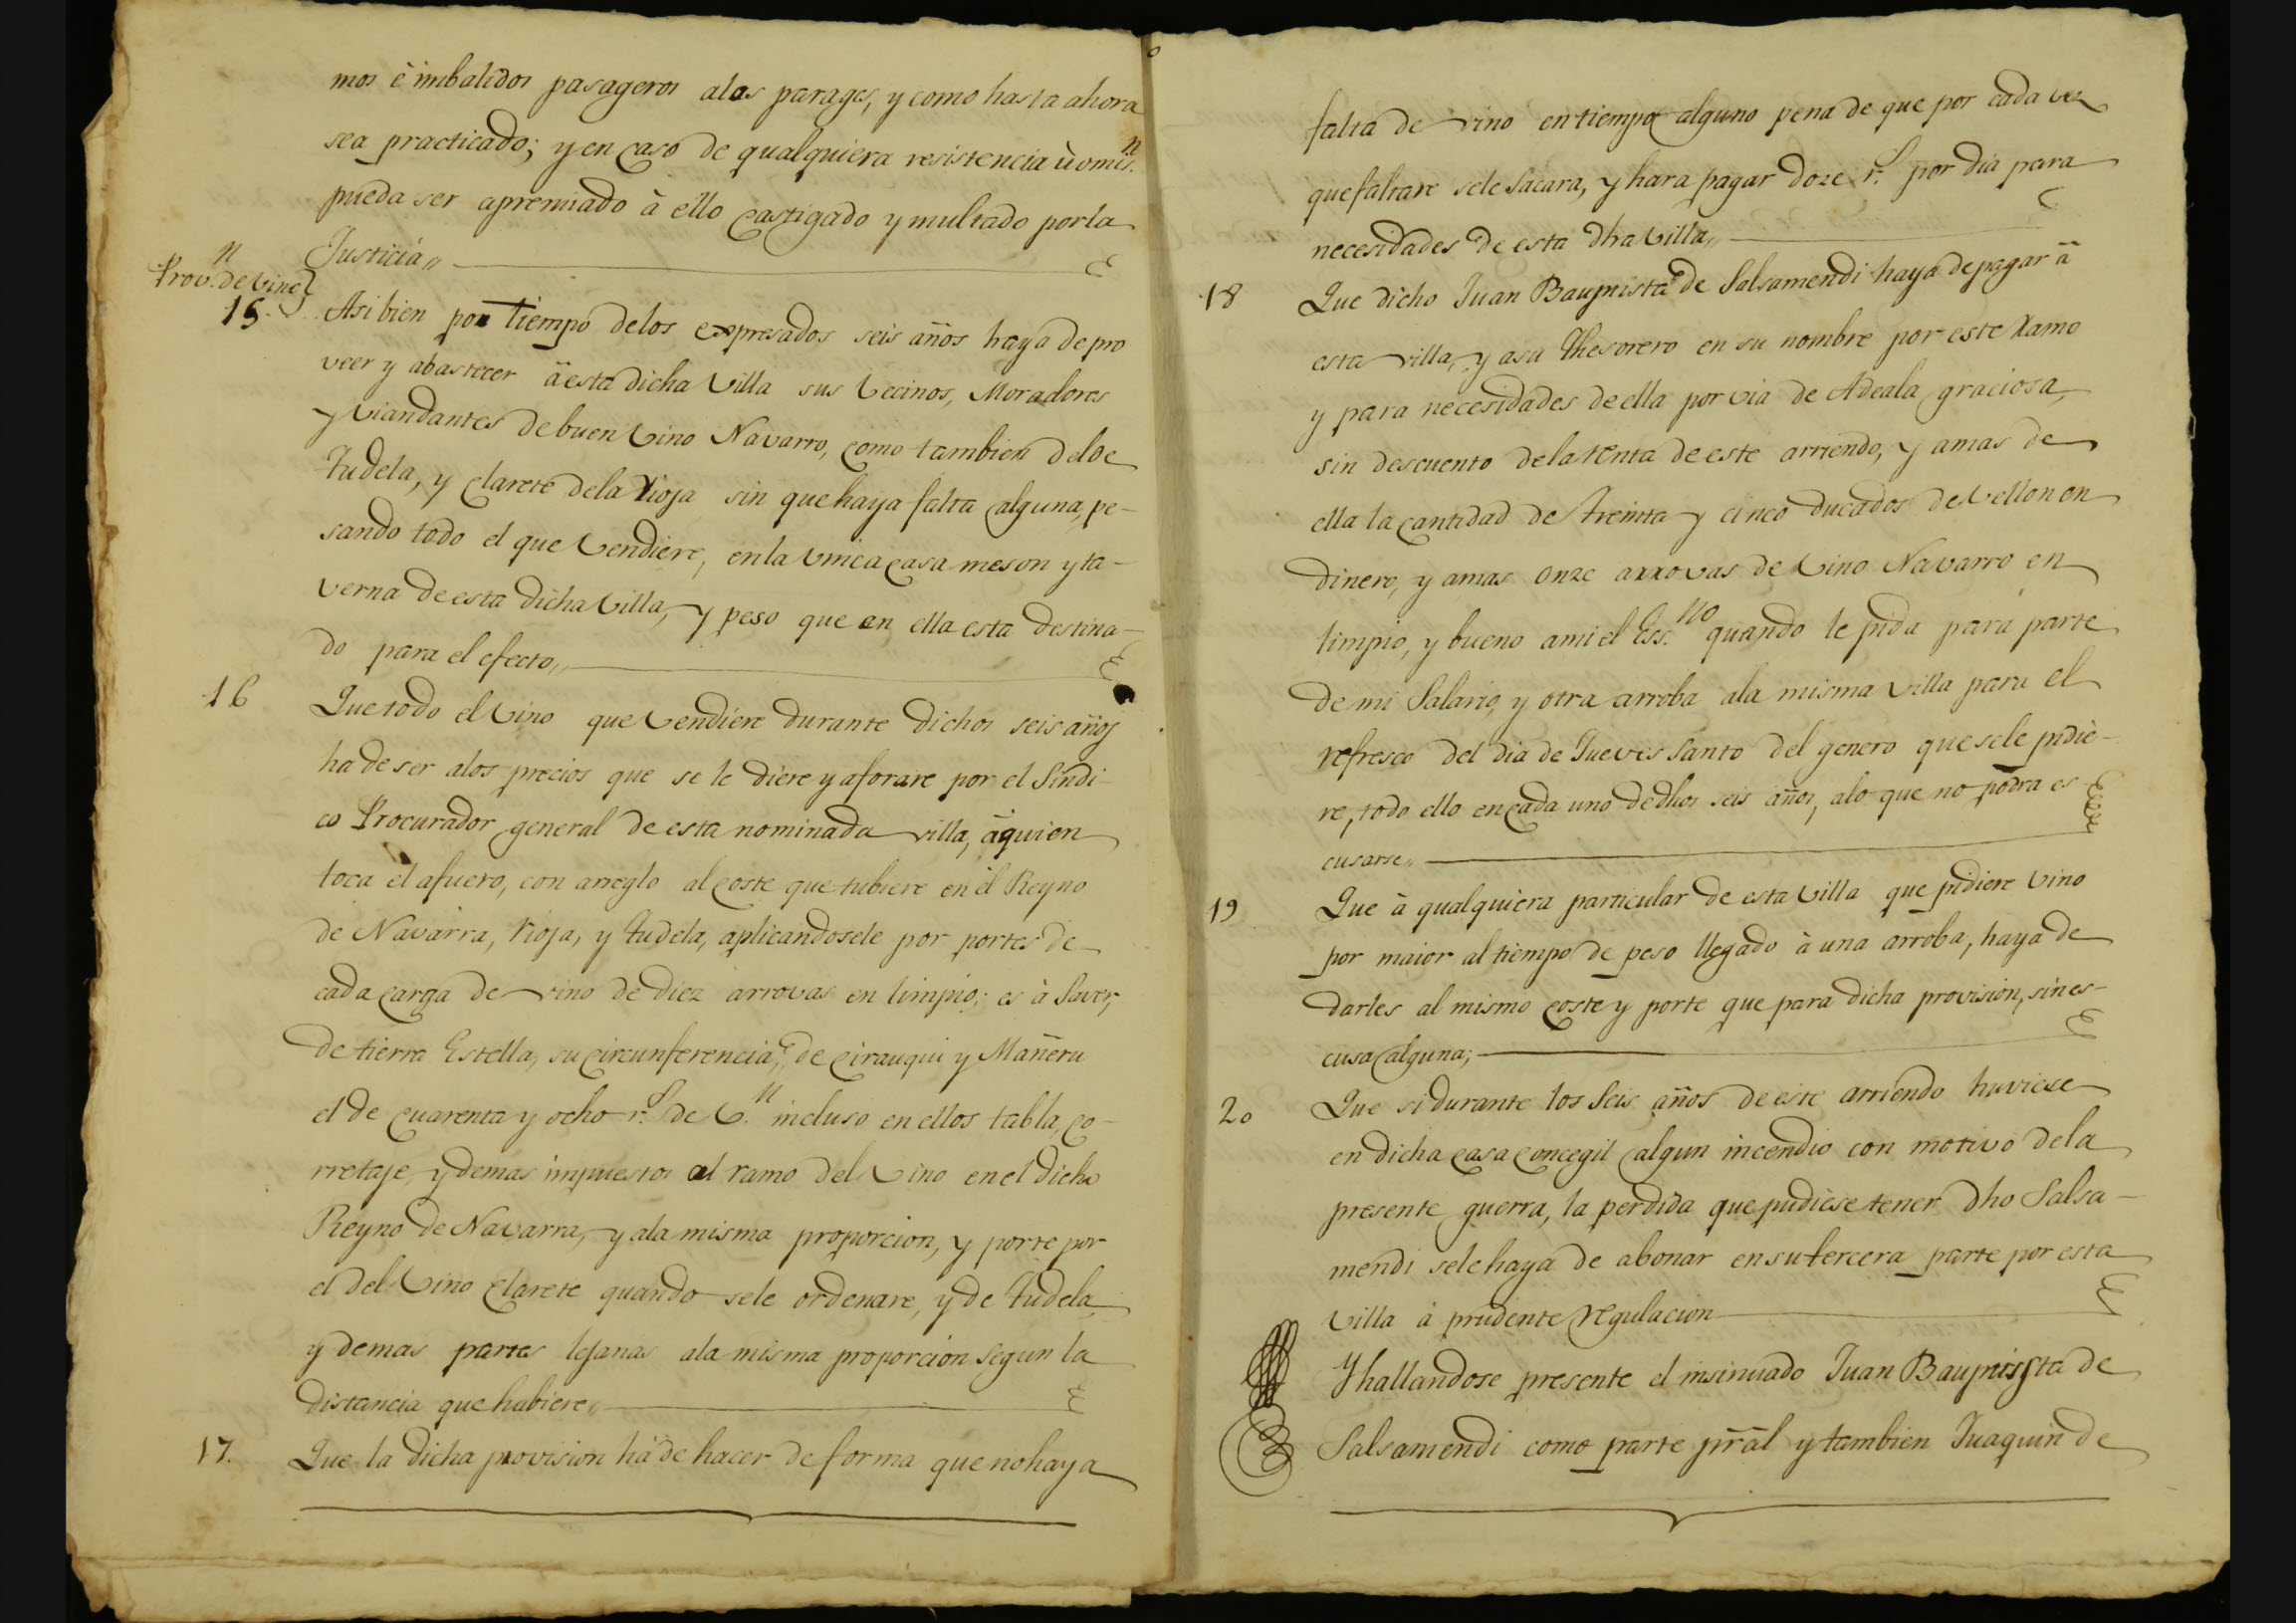 mos è imbalidos pasageros alos parages, y como hasta ahora
sea practicado; y en caso de qualquiera resistencia ù omis.n
pueda ser apremiado à ello castigado y multado por la
Justicia,,
Prov.n de Vino
15. Asi bien por tiempo delos expresados seis años haya de pro
veer y abastecer ä esta dicha Villa sus Vecinos, Moradores
y Viandantes de buen Vino Navarro, como tambien deloe
Tudela, y clarete dela Rioja sin que haya falta alguna, pe-
sando todo el que Vendiere, en la Unica casa meson y ta-
verna de esta dicha Villa, y peso que en ella esta destina-
do para el efecto,,
16 Que todo el Vino que Vendiere durante dichos seis años
ha de ser alos precios que se le diere y aforare por el Sindi-
co Procurador general de esta nominada villa, ä quien
toca el afuero, con arreglo al coste que tubiere en el Reyno
de Navarra, Rioja, y Tudela, aplicandosele por portes de
cada carga de vino de diez arrovas en limpio; es à Saver,
de tierra Estella, su circunferencia, de Cirauqui y Mañeru
el de cuarenta y ocho r.s de V.n incluso en ellos tabla, co-
rretaje, y demas impuestos al ramo del Vino en el dicho
Reyno de Navarra, y ala misma proporcion, y porte por
el del Vino Clarete quando sele ordenare, y de Tudela,
y demas partes lejanas ala misma proporcion segun la
distancia que hubiere,,
17. Que la dicha provision hà de hacer de forma que no haya
falta de vino en tiempo alguno pena de que por cada vez
que faltare sele sacara, y hara pagar doze r.s por dia para
necesidades de esta dha Villa,,
18 Que dicho Juan Baupnista de Salsamendi haya de pagar ä
esta villa, y asu Thesorero en su nombre por este Ramo
y para necesidades de ella por via de Adeala graciosa,
sin descuento dela renta de este arriendo, y amas de
ella la cantidad de treinta y cinco ducados de Vellon en
dinero, y amas onze arrovas de Vino Navarro en
limpio, y bueno ami el Ess.no quando le pida para parte
de mi Salario, y otra arroba ala misma villa para el
refresco del dia de Jueves Santo del genero que sele pidie-
re, todo ello en cada uno de dhos seis años, alo que no podra es
cusarse,,
19 Que à qualquiera particular de esta Villa que pidiere Vino
por maior al tiempo de peso llegado à una arroba, haya de
darles al mismo coste y porte que para dicha provision, sin es-
cusa alguna;
20 Que si durante los Seis años de este arriendo huviese
en dicha casa concegil algun incendio con motivo dela
presente guerra, la perdida que pudiese tener dho Salsa-
mendi sele haya de abonar en su tercera parte por esta
Villa à prudente regulacion
Y hallandose presente el insinuado Juan Baupnissta de
Salsamendi como parte prãl y tambien Juaquin de